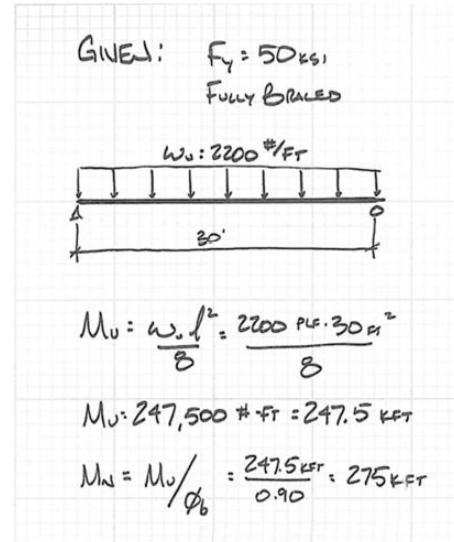 GIVEN: Fy = 50 KSI
FULLY BRACED
Wu: 2200 #/FT
30'
Mu = wu l² / 8 = 2200 PLF · 30 FT² / 8
Mu = 247,500 #·FT = 247.5 KFT
MN = Mu/ϕb = 247.5 KFT / 0.90 = 275 KFT